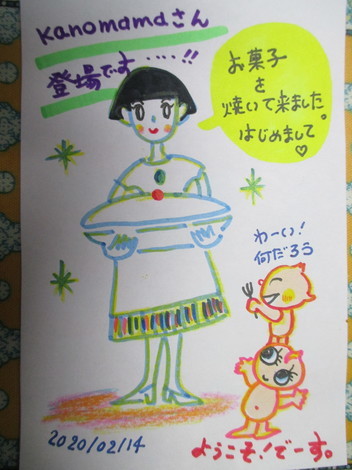 kanomamaさん
登場です‥‥!!
お菓子
を
焼いて来ました。
はじめまして♡
わーい!
何だろう
2020/02/14
ようこそ!でーす。